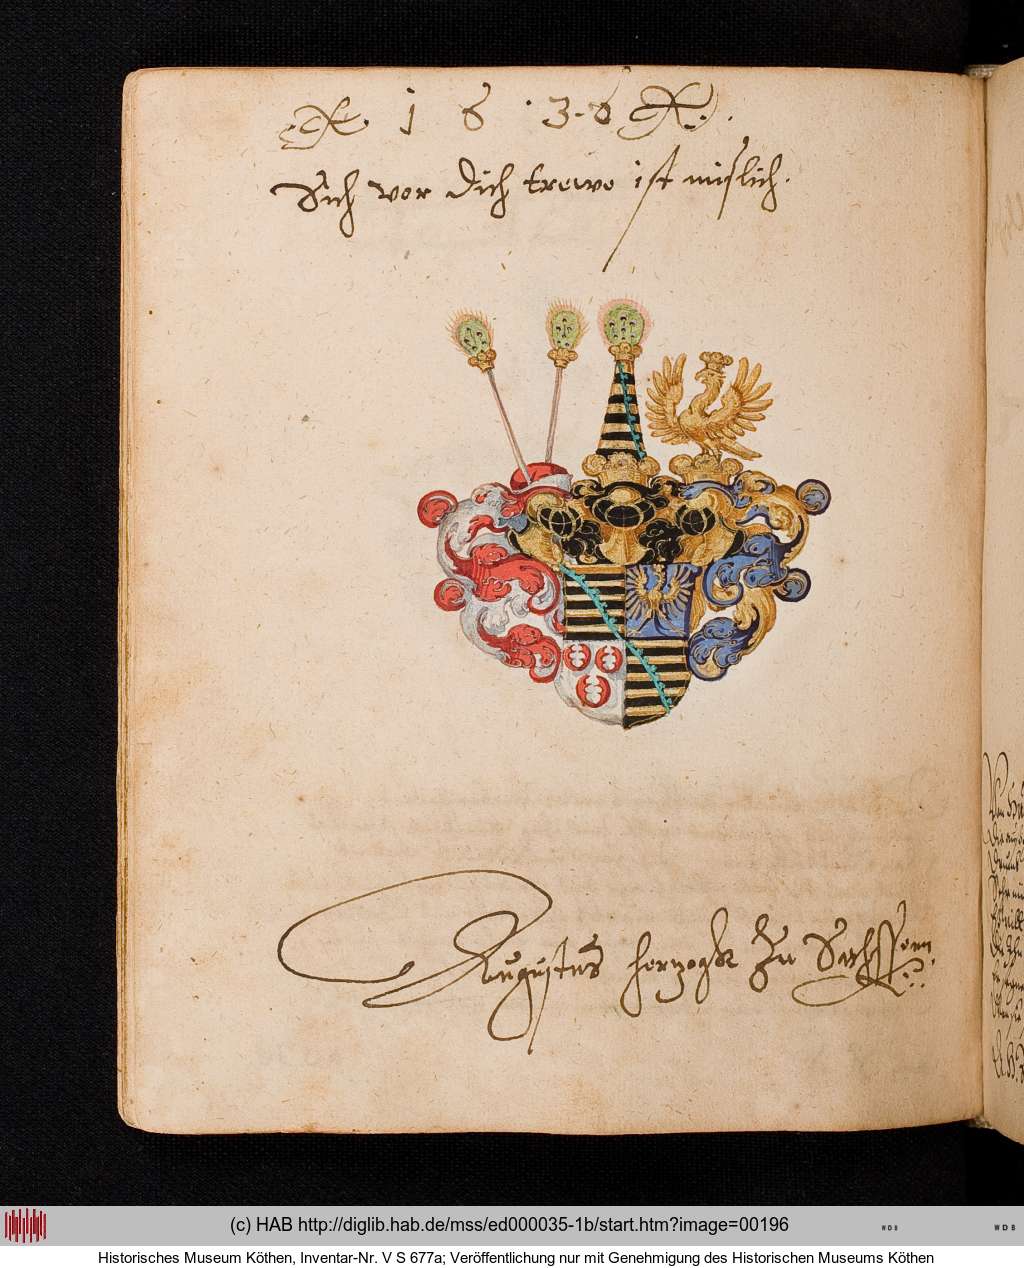 1 6 · 3 · 6
Sich vor dich trewe ist mislich.
Augustus herzogk zu Sachssenn.
(c) HAB http://diglib.hab.de/mss/ed000035-1b/start.htm?image=00196
WDB WDB
Historisches Museum Köthen, Inventar-Nr. V S 677a; Veröffentlichung nur mit Genehmigung des Historischen Museums Köthen